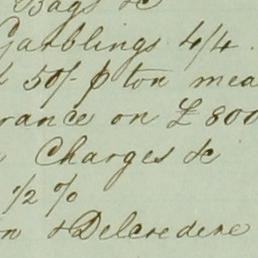 Bags &c
Garblings 4/4.
50/- p ton mea
rance on £800
Charges &c
1/2 %
n & Delcredere